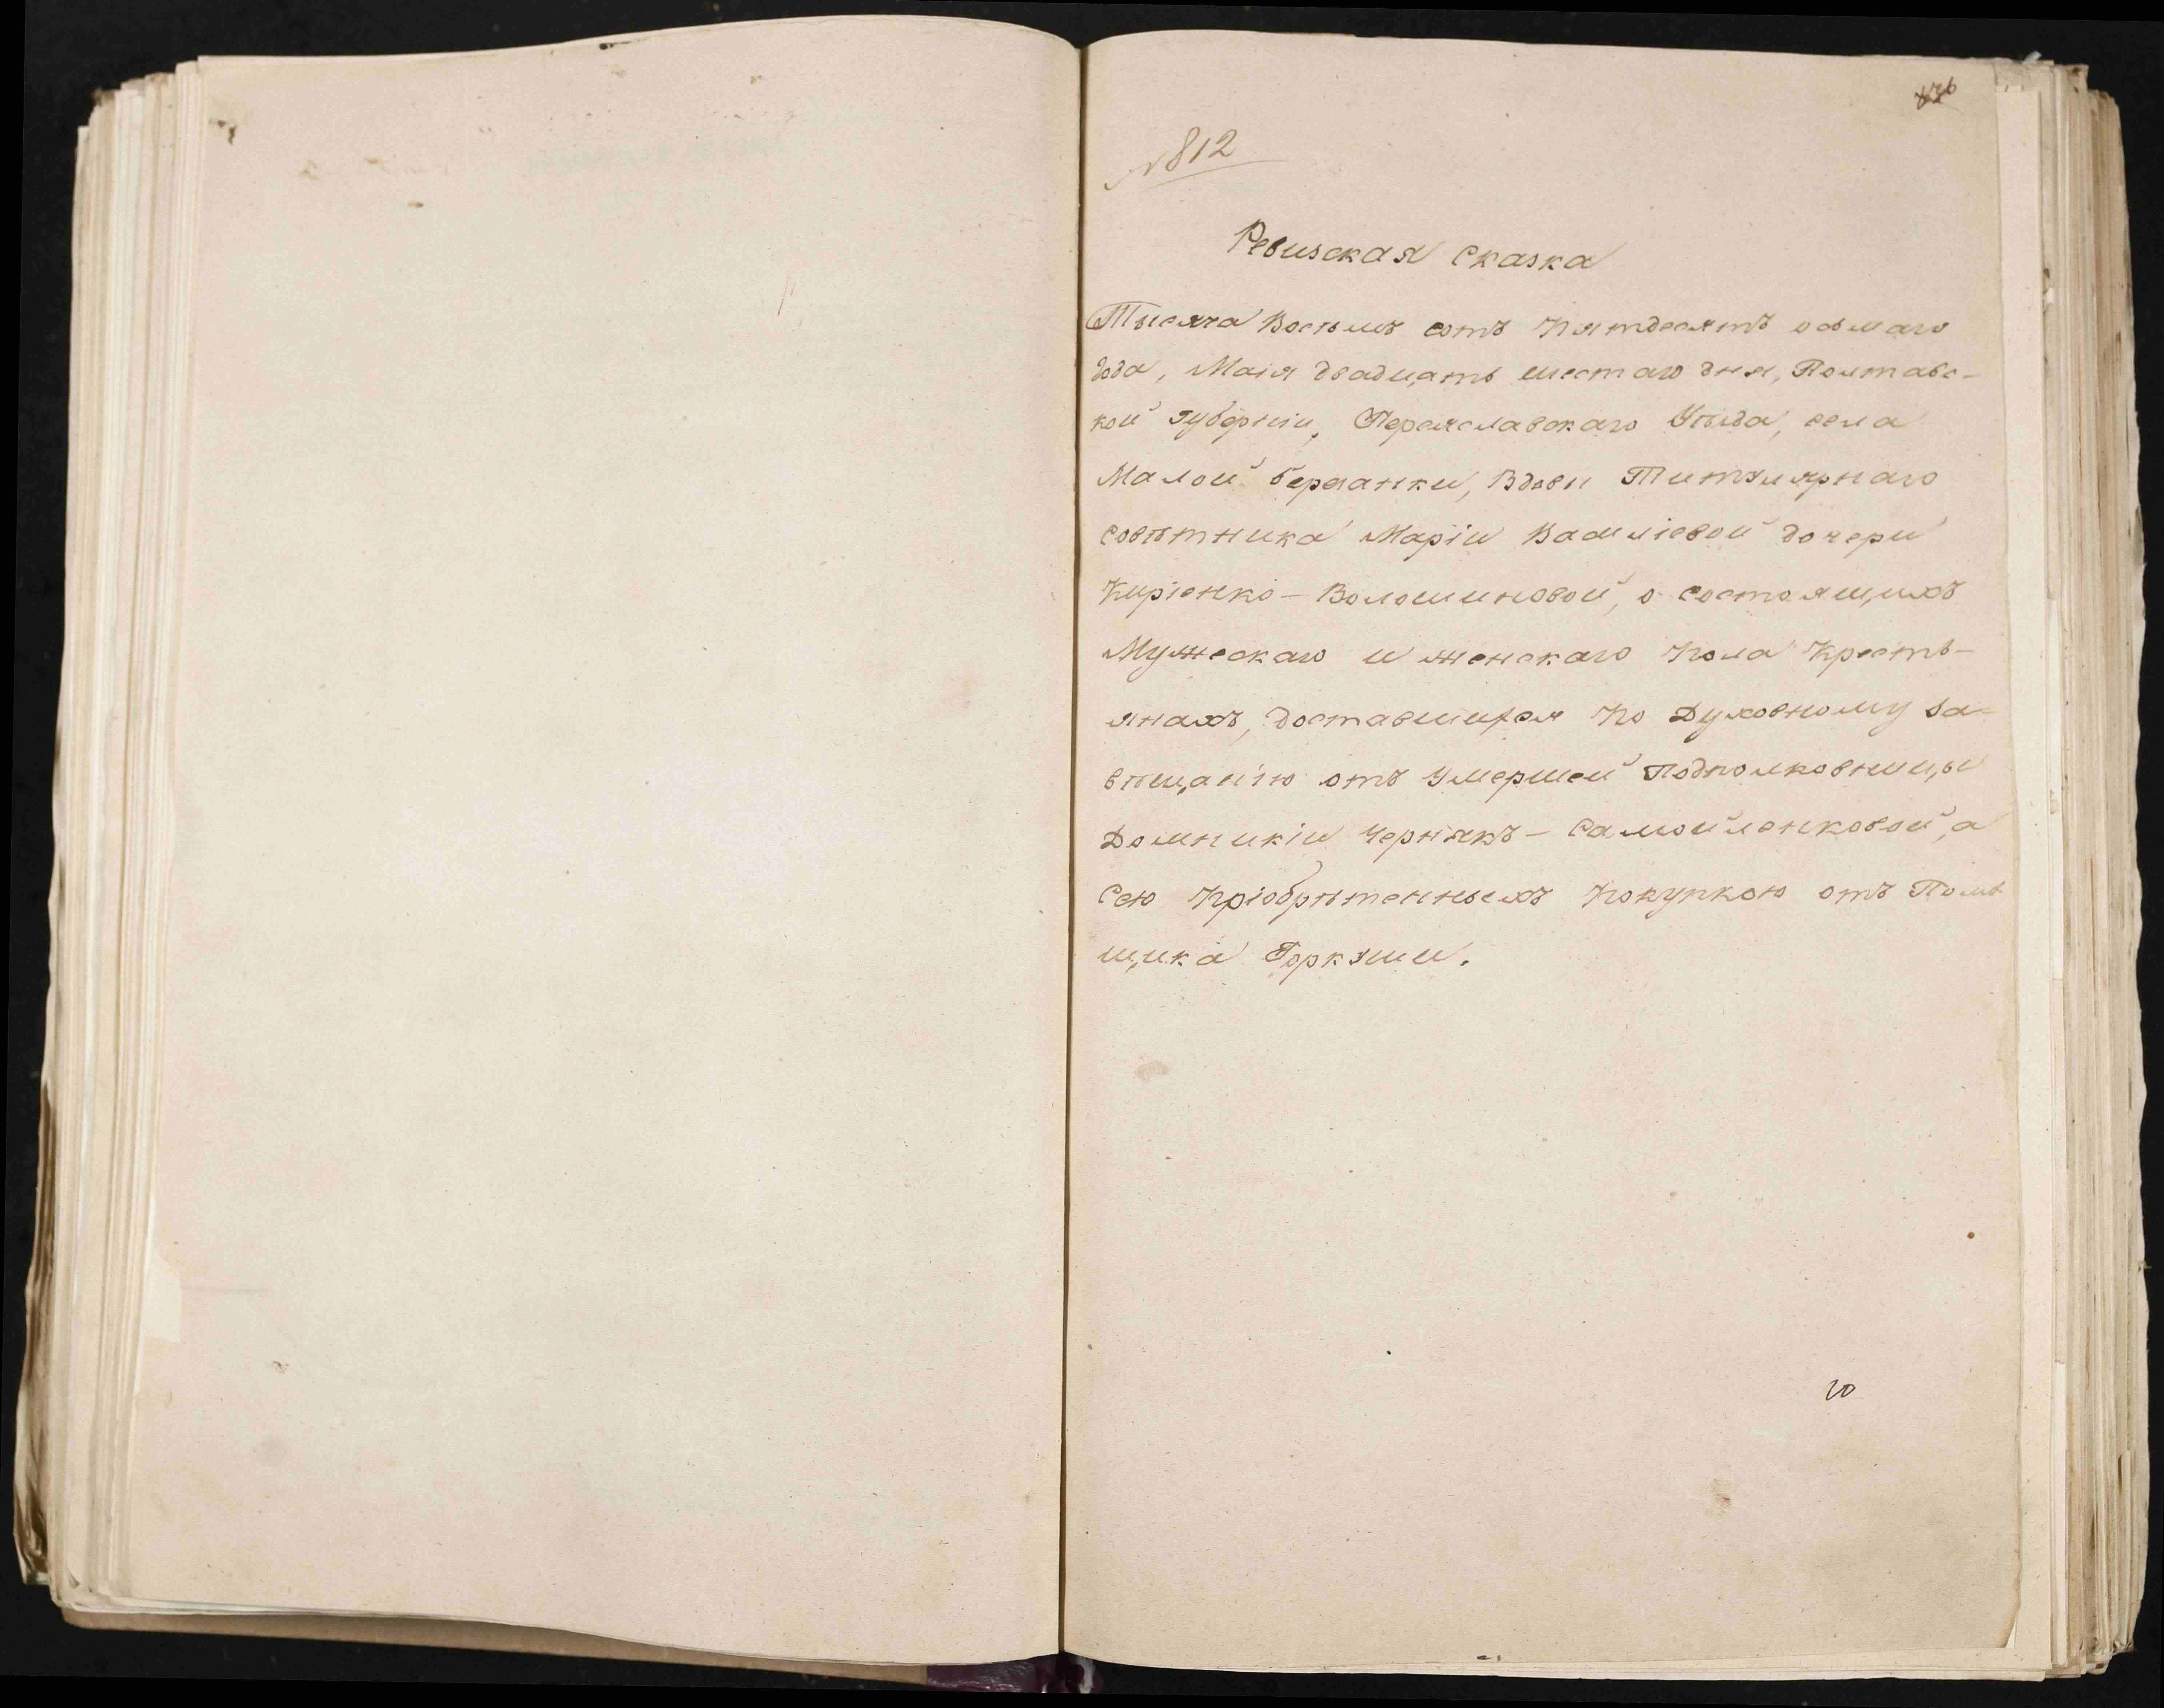 № 812
Ревизская Сказка
Тысяча Восемъ сотъ Пятдесятъ осьмаго
Года, Маія двадцать шестаго дня, Полтавс-
кой губерніи, Переяславскаго Уѣзда, села
Малой беранки, Вдовы Титулярнаго
совѣтника Маріи Василіевой дочери
Киріенко-Волошиновой, о состоящихъ
Мужескаго и женскаго Пола Кресть-
янахъ, доставшихся По Духовному за-
вѣщанію отъ Умершей Подполковницы
Домникіи Чернякъ-Самойленковой, а
Сею Пріобрѣтенныхъ Покупкою отъ Помѣ
щика Горкуши.
10